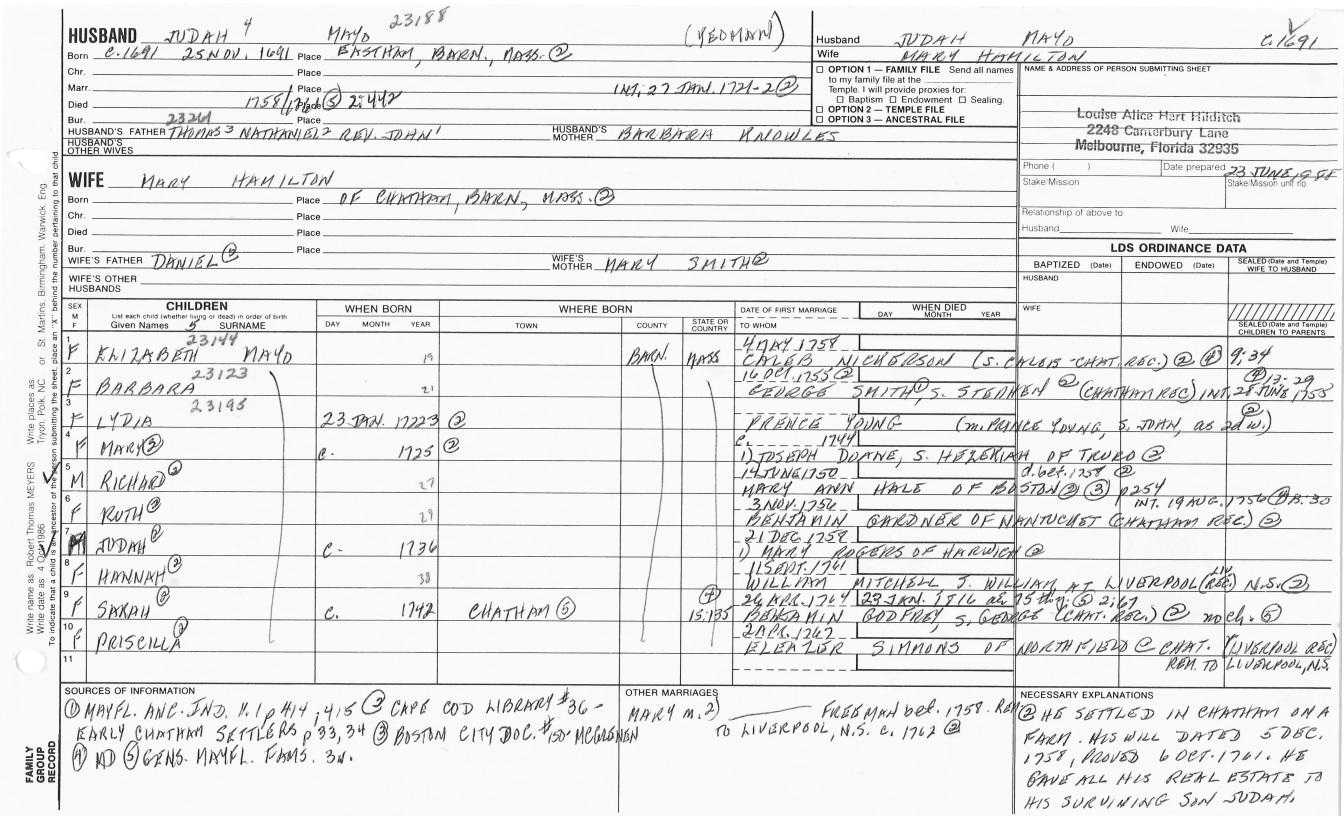 HUSBAND JUDAH 4 MAYO 23188 (YEOMAN)
Born C.1691 25 NOV. 1691 Place EASTHAM, BARN., MASS. ②
Chr. Place
Marr. Place INT; 27 JAN. 1721-2 ②
Died 1758/ Place ⑤ 2:442
Bur. 23261 Place
HUSBAND'S FATHER THOMAS 3 NATHANIEL 2 REV. JOHN 1 HUSBAND'S MOTHER BARBARA KNOWLES
HUSBAND'S OTHER WIVES
WIFE MARY HAMILTON
Born Place OF CHATHAM, BARN., MASS. ②
Chr. Place
Died Place
Bur. Place
WIFE'S FATHER DANIEL ② WIFE'S MOTHER MARY SMITH ②
WIFE'S OTHER HUSBANDS
Husband JUDAH MAYO C.1691
Wife MARY HAMILTON
☐ OPTION 1 — FAMILY FILE Send all names
to my family file at the
Temple. I will provide proxies for:
☐ Baptism ☐ Endowment ☐ Sealing.
☐ OPTION 2 — TEMPLE FILE
☐ OPTION 3 — ANCESTRAL FILE
NAME & ADDRESS OF PERSON SUBMITTING SHEET
Louise Alice Hart Hilditch
2248 Canterbury Lane
Melbourne, Florida 32935
Phone ( ) Date prepared 23 JUNE, 1988
Stake/Mission Stake/Mission unit no.
Relationship of above to
Husband Wife
LDS ORDINANCE DATA
BAPTIZED (Date) ENDOWED (Date) SEALED (Date and Temple) WIFE TO HUSBAND
HUSBAND
WIFE
SEALED (Date and Temple) CHILDREN TO PARENTS
SEX M F CHILDREN WHEN BORN WHERE BORN DATE OF FIRST MARRIAGE WHEN DIED
List each child (whether living or dead) in order of birth
Given Names 5 SURNAME DAY MONTH YEAR TOWN COUNTY STATE OR COUNTRY TO WHOM DAY MONTH YEAR
1 23144 4 MAY 1758
F ELIZABETH MAYO 19 BARN. MASS CALEB NICKERSON (S. CALEB - CHAT. REC.) ② ④ 9:34
2 23123 16 OCT. 1755 ② ④ 13:29
F BARBARA 21 GEORGE SMITH, S. STEPHEN ② (CHATHAM REC) INT. 28 JUNE 1755
3 23195
F LYDIA 23 JAN. 17223 ② PRENCE YOUNG (m. PRINCE YOUNG, S. JOHN, as 2d w.) ②
4 c. 1744
F MARY ② c. 1725 ② 1) JOSEPH DOANE, S. HEZEKIAH OF TRURO ②
5 14 JUNE 1750 d. bet. 1758 ②
M RICHARD ② 27 MARY ANN HALE OF BOSTON ② ③ p254
6 3 NOV. 1756 INT. 19 AUG. 1756
F RUTH ② 29 BENJAMIN GARDNER OF NANTUCKET (CHATHAM REC.) ②
7 21 DEC 1758
M JUDAH ② c- 1736 1) MARY ROGERS OF HARWICH ②
8 11 SEPT. 1761
F HANNAH ② 38 WILLIAM MITCHELL J. WILLIAM AT LIVERPOOL (LIV. REC.) N.S. ②
9 26 APR. 1764 23 JAN. 1816 ae 75 ⑤ 2:67
F SARAH ② c. 1742 CHATHAM ⑤ ④ 15:135 BENJAMIN GODFREY, S. GEORGE (CHAT. REC.) ② no ch. ⑤
10 2 APR. 1767
F PRISCILLA ② ELEAZER SIMMONS OF NORTHFIELD @ CHAT. (LIVERPOOL REC)
11 REM. TO LIVERPOOL, N.S.
SOURCES OF INFORMATION
① MAYFL. ANC. IND. V.1 p 414, 415 ② CAPE COD LIBRARY #36 -
EARLY CHATHAM SETTLERS p 33, 34 ③ BOSTON CITY DOC. #150-
④ MD ⑤ GENS. MAYFL. FAMS. 3v.
OTHER MARRIAGES
MARY m. 2) FREEMAN bet. 1758. REM
TO LIVERPOOL, N.S. c. 1762 ②
NECESSARY EXPLANATIONS
② HE SETTLED IN CHATHAM ON A
FARM. HIS WILL DATED 5 DEC.
1758, PROVED 6 OCT. 1761. HE
GAVE ALL HIS REAL ESTATE TO
HIS SURVINING SON JUDAH.
FAMILY GROUP RECORD
Write name as Robert Thomas MEYERS Write places as: Tryon, Polk, NC or St. Martins, Birmingham, Warwick, Eng.
Write date as 4 Oct 1986
To indicate that a child is an ancestor of the person submitting the sheet, place an "X" behind the number pertaining to that child